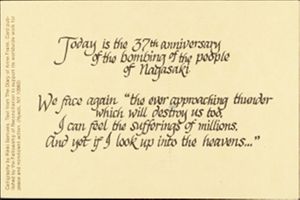 Today is the 37th anniversary
of the bombing of the people
of Nagasaki.
We face again "the ever approaching thunder
which will destroy us too,
I can feel the sufferings of millions,
And yet if I look up into the heavens..."
Calligraphy by Text from The Diary of Anne Frank. Card pub-
lished by the Fellowship of Reconciliation to support its worldwide work for
peace and nonviolent action. (Nyack, NY 10960)